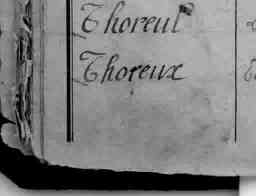 Thoreul
Thoreux